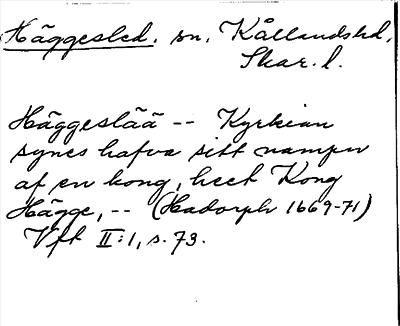 Häggesled. sn. Kållandshd,
Skar. l.
Häggeslää -- Kyrkian
synes hafva sitt nampn
af en kong, heet Kong
Hägge, -- (Hadorph 1669-71)
Vft II:1, s. 73.